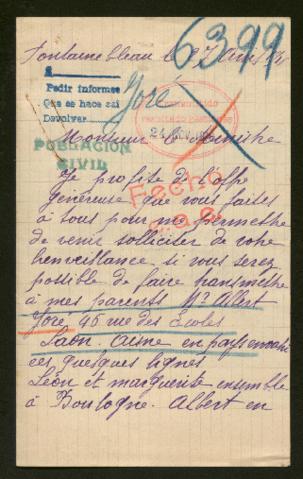 6399
Fontainebleau le
Pedir informes
Que se haga
Devolver
Joré
24 NOV
POBLACION
CIVIL
Monsieur le Ministre
Fecho
Je profite de l'offre
généreuse que vous faites
à tous pour me permettre
de venir solliciter de votre
bienveillance, si vous serez
possible de faire transmettre
à mes parents Mr Albert
Joré 96 rue des Écoles
Laon. Aisne en pays envahi
ces quelques lignes
Léon et marguerite ensemble
à Boulogne. Albert en